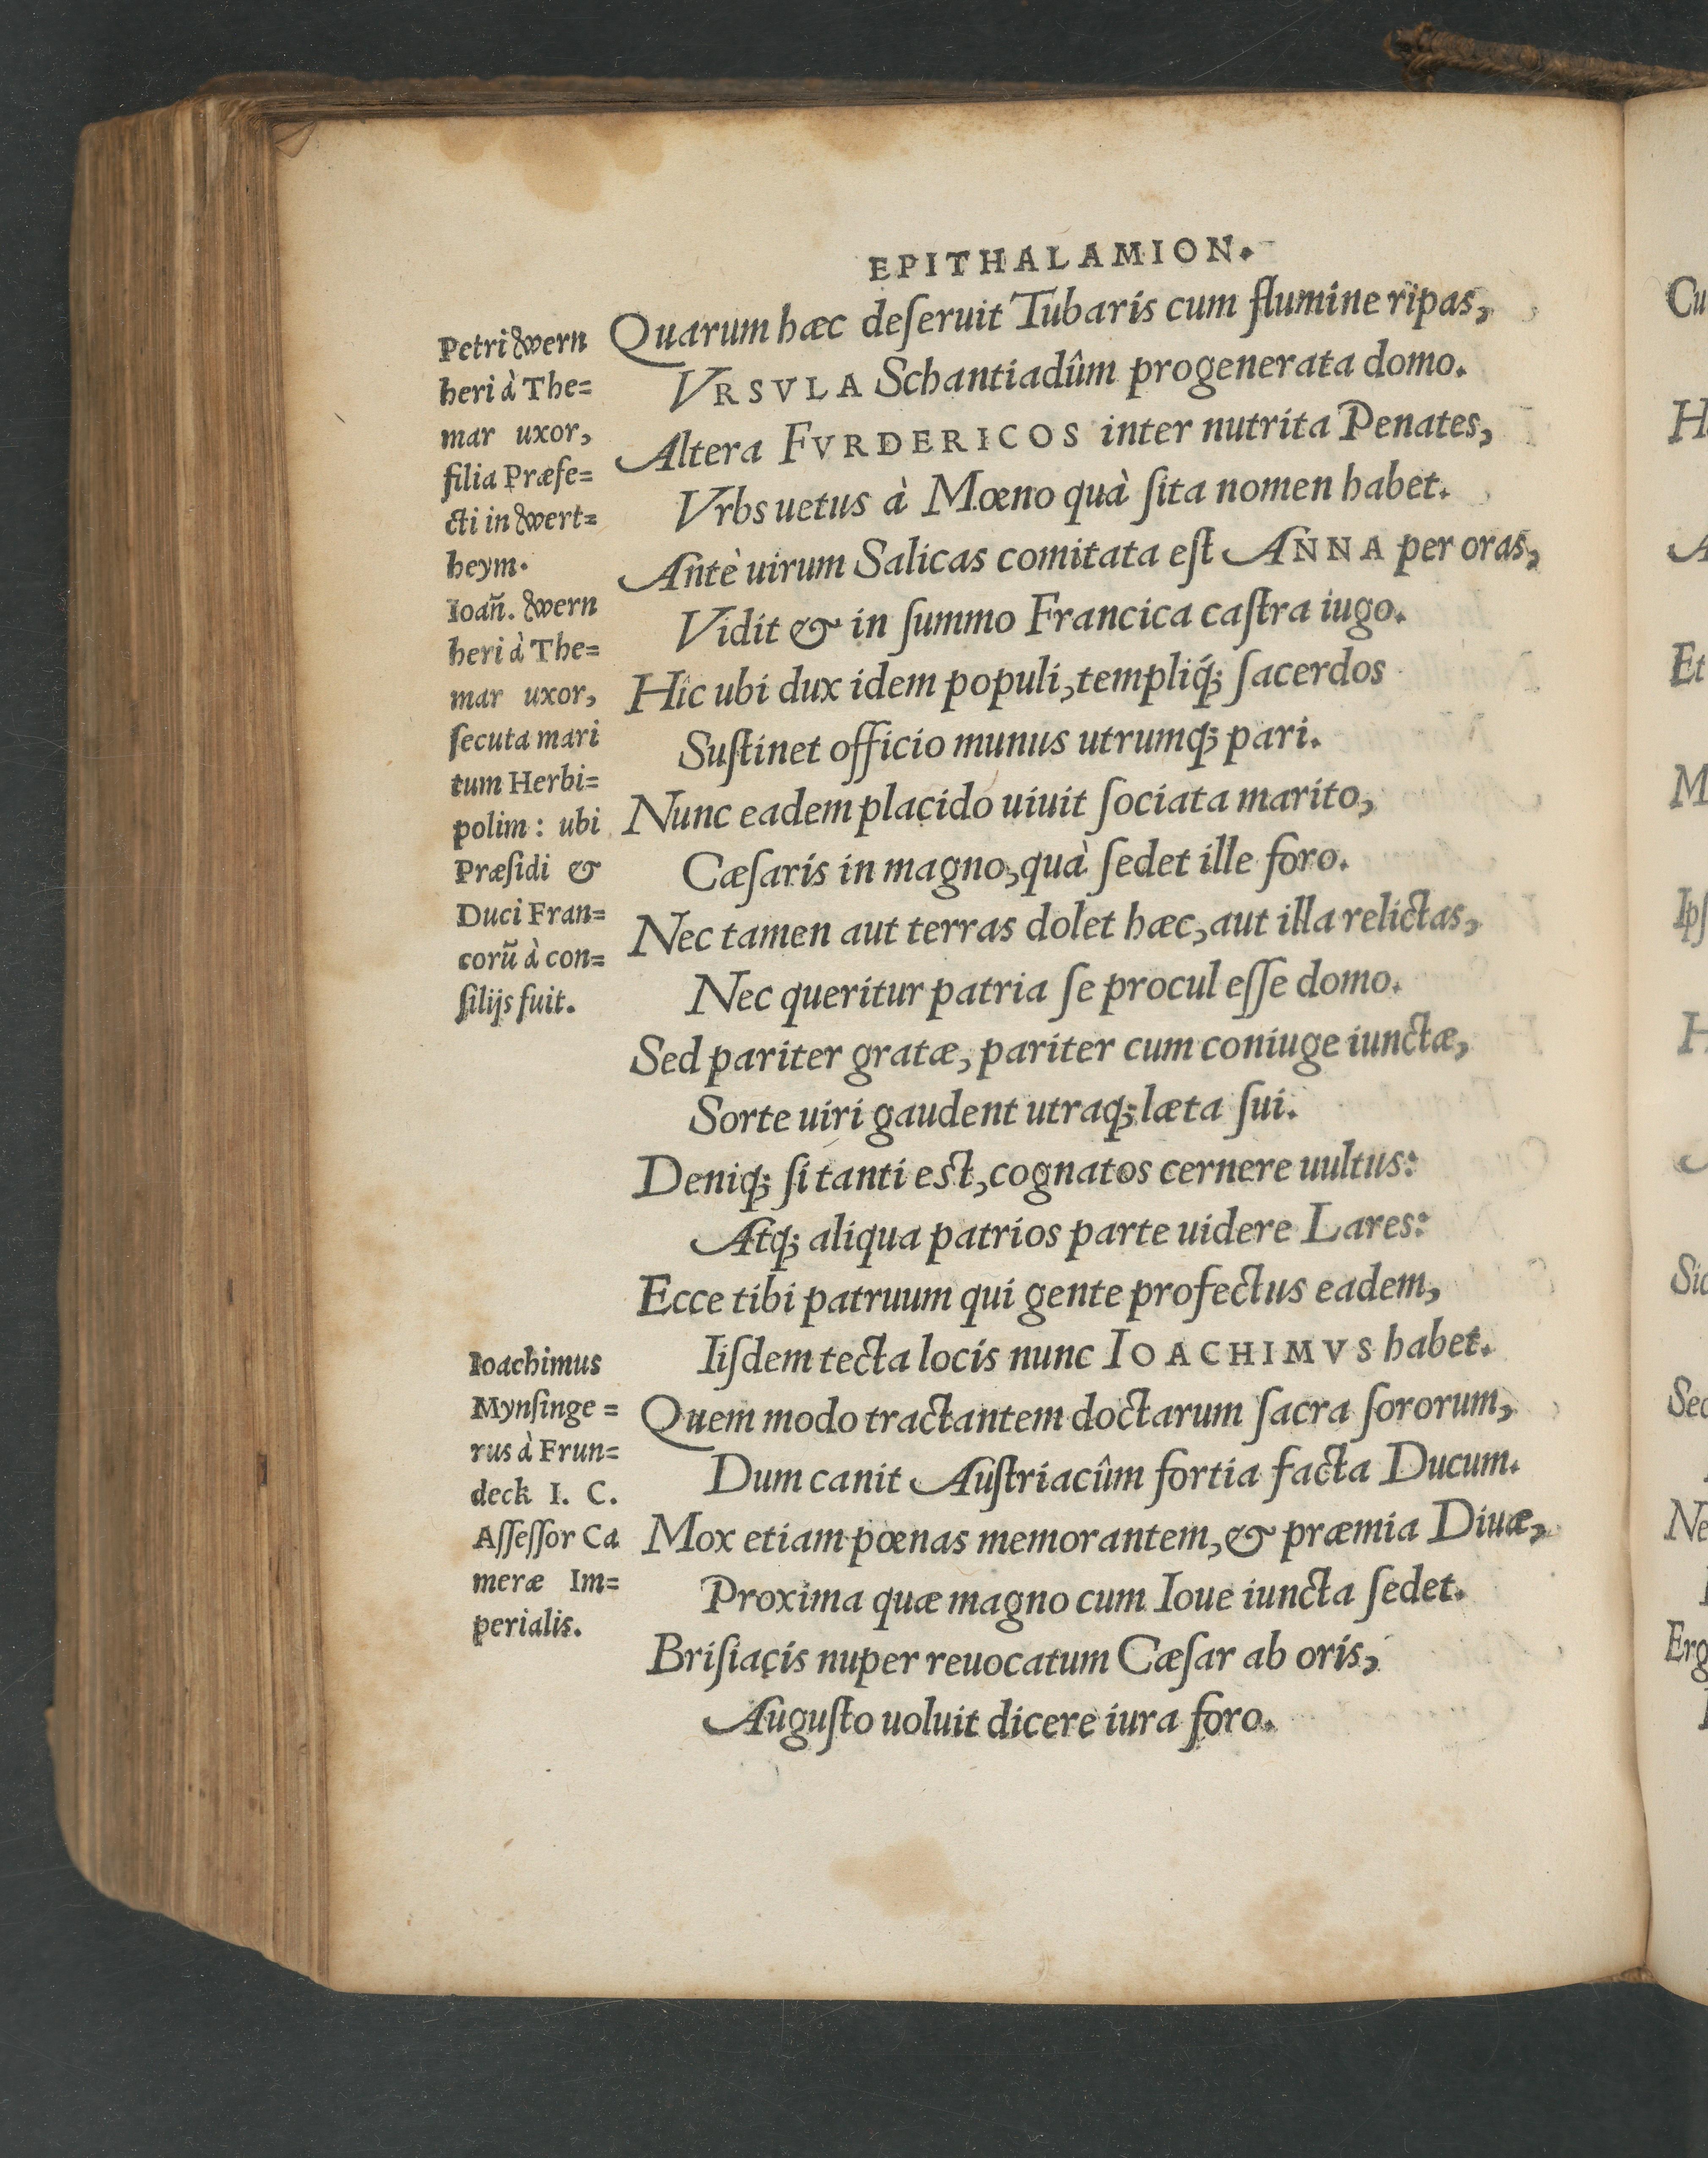 EPITHALAMION.
Quarum hæc deſeruit Tubaris cum flumine ripas,
VRSVLA Schantiadûm progenerata domo.
Altera FVRDERICOS inter nutrita Penates,
Vrbs uetus à Mœno quà ſita nomen habet.
Antè uirum Salicas comitata eſt ANNA per oras,
Vidit & in ſummo Francica caſtra iugo.
Hîc ubi dux idem populi, templiq́; ſacerdos
Suſtinet officio munus utrumq; pari.
Nunc eadem placido uiuit ſociata marito,
Cæſaris in magno, quà ſedet ille foro.
Nec tamen aut terras dolet hæc, aut illa relictas,
Nec queritur patria ſe procul eſſe domo.
Sed pariter gratæ, pariter cum coniuge iunctæ,
Sorte uiri gaudent utraq; læta ſui.
Deniq; ſi tanti est, cognatos cernere uultus:
Atq; aliqua patrios parte uidere Lares:
Ecce tibi patruum qui gente profectus eadem,
Iiſdem tecta locis nunc IOACHIMVS habet.
Quem modo tractantem doctarum ſacra ſororum,
Dum canit Auſtriacûm fortia facta Ducum.
Mox etiam pœnas memorantem, & præmia Diuæ,
Proxima quæ magno cum Ioue iuncta ſedet.
Briſiacis nuper reuocatum Cæſar ab oris,
Auguſto uoluit dicere iura foro.
Petri Wern
heri à The=
mar uxor,
filia Præfe=
cti in Wert=
heym.
Ioañ. Wern
heri à The=
mar uxor,
ſecuta mari
tum Herbi=
polim: ubi
Præſidi &
Duci Fran=
corũ à con=
ſilijs fuit.
Ioachimus
Mynſinge=
rus à Frun=
deck I. C.
Aſſeſſor Ca
meræ Im=
perialis.